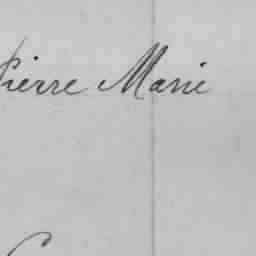 Pierre Marie